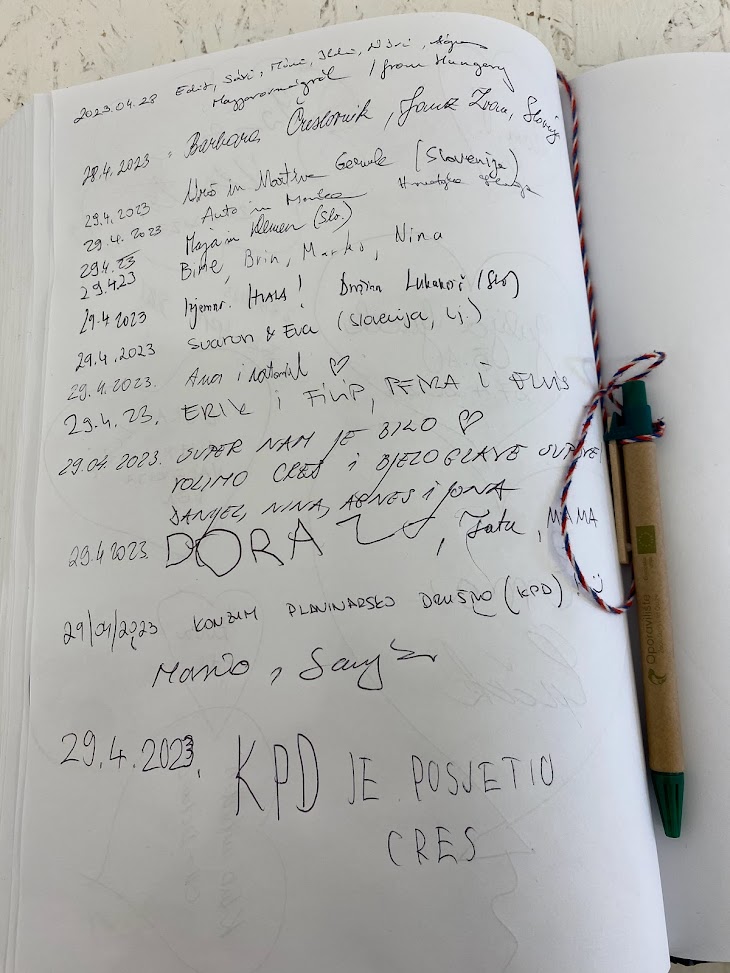 2023.04.28 Edit, Sári, Mimi, Ildi, Nóri,
Magyarországról / from Hungary
28.4.2023. Barbara Čreslovnik, Janez Zvan, Slovenija
29.4.2023 Uroš in Martina (Slovenija)
29.4.2023 Auto in
29.4.23 Maja in Klemen (Slo.)
29.4.23 Bine, Brin, Marko, Nina
29.4.2023 Izjemno. HVALA! Lukanović (Slo)
29.4.2023 Svarun & Eva (Slovenija, Lj.)
29.4.2023. Ana i ♡
29.4.23. ERIK i FILIP, PEMZA i ELVIS
29.04.2023. SUPER NAM JE BILO ♡
VOLIMO CRES i BJELOGLAVE SUPOVE
DANIJEL, NINA, AGNES i JONA
29.4.2023. DORA, Tata, MAMA
29/04/2023 KONZUM PLANINARSKO DRUŠTVO (KPD) Ü
Mario, Sanja
29.4.2023. KPD JE POSJETIO
CRES
Oporavilište